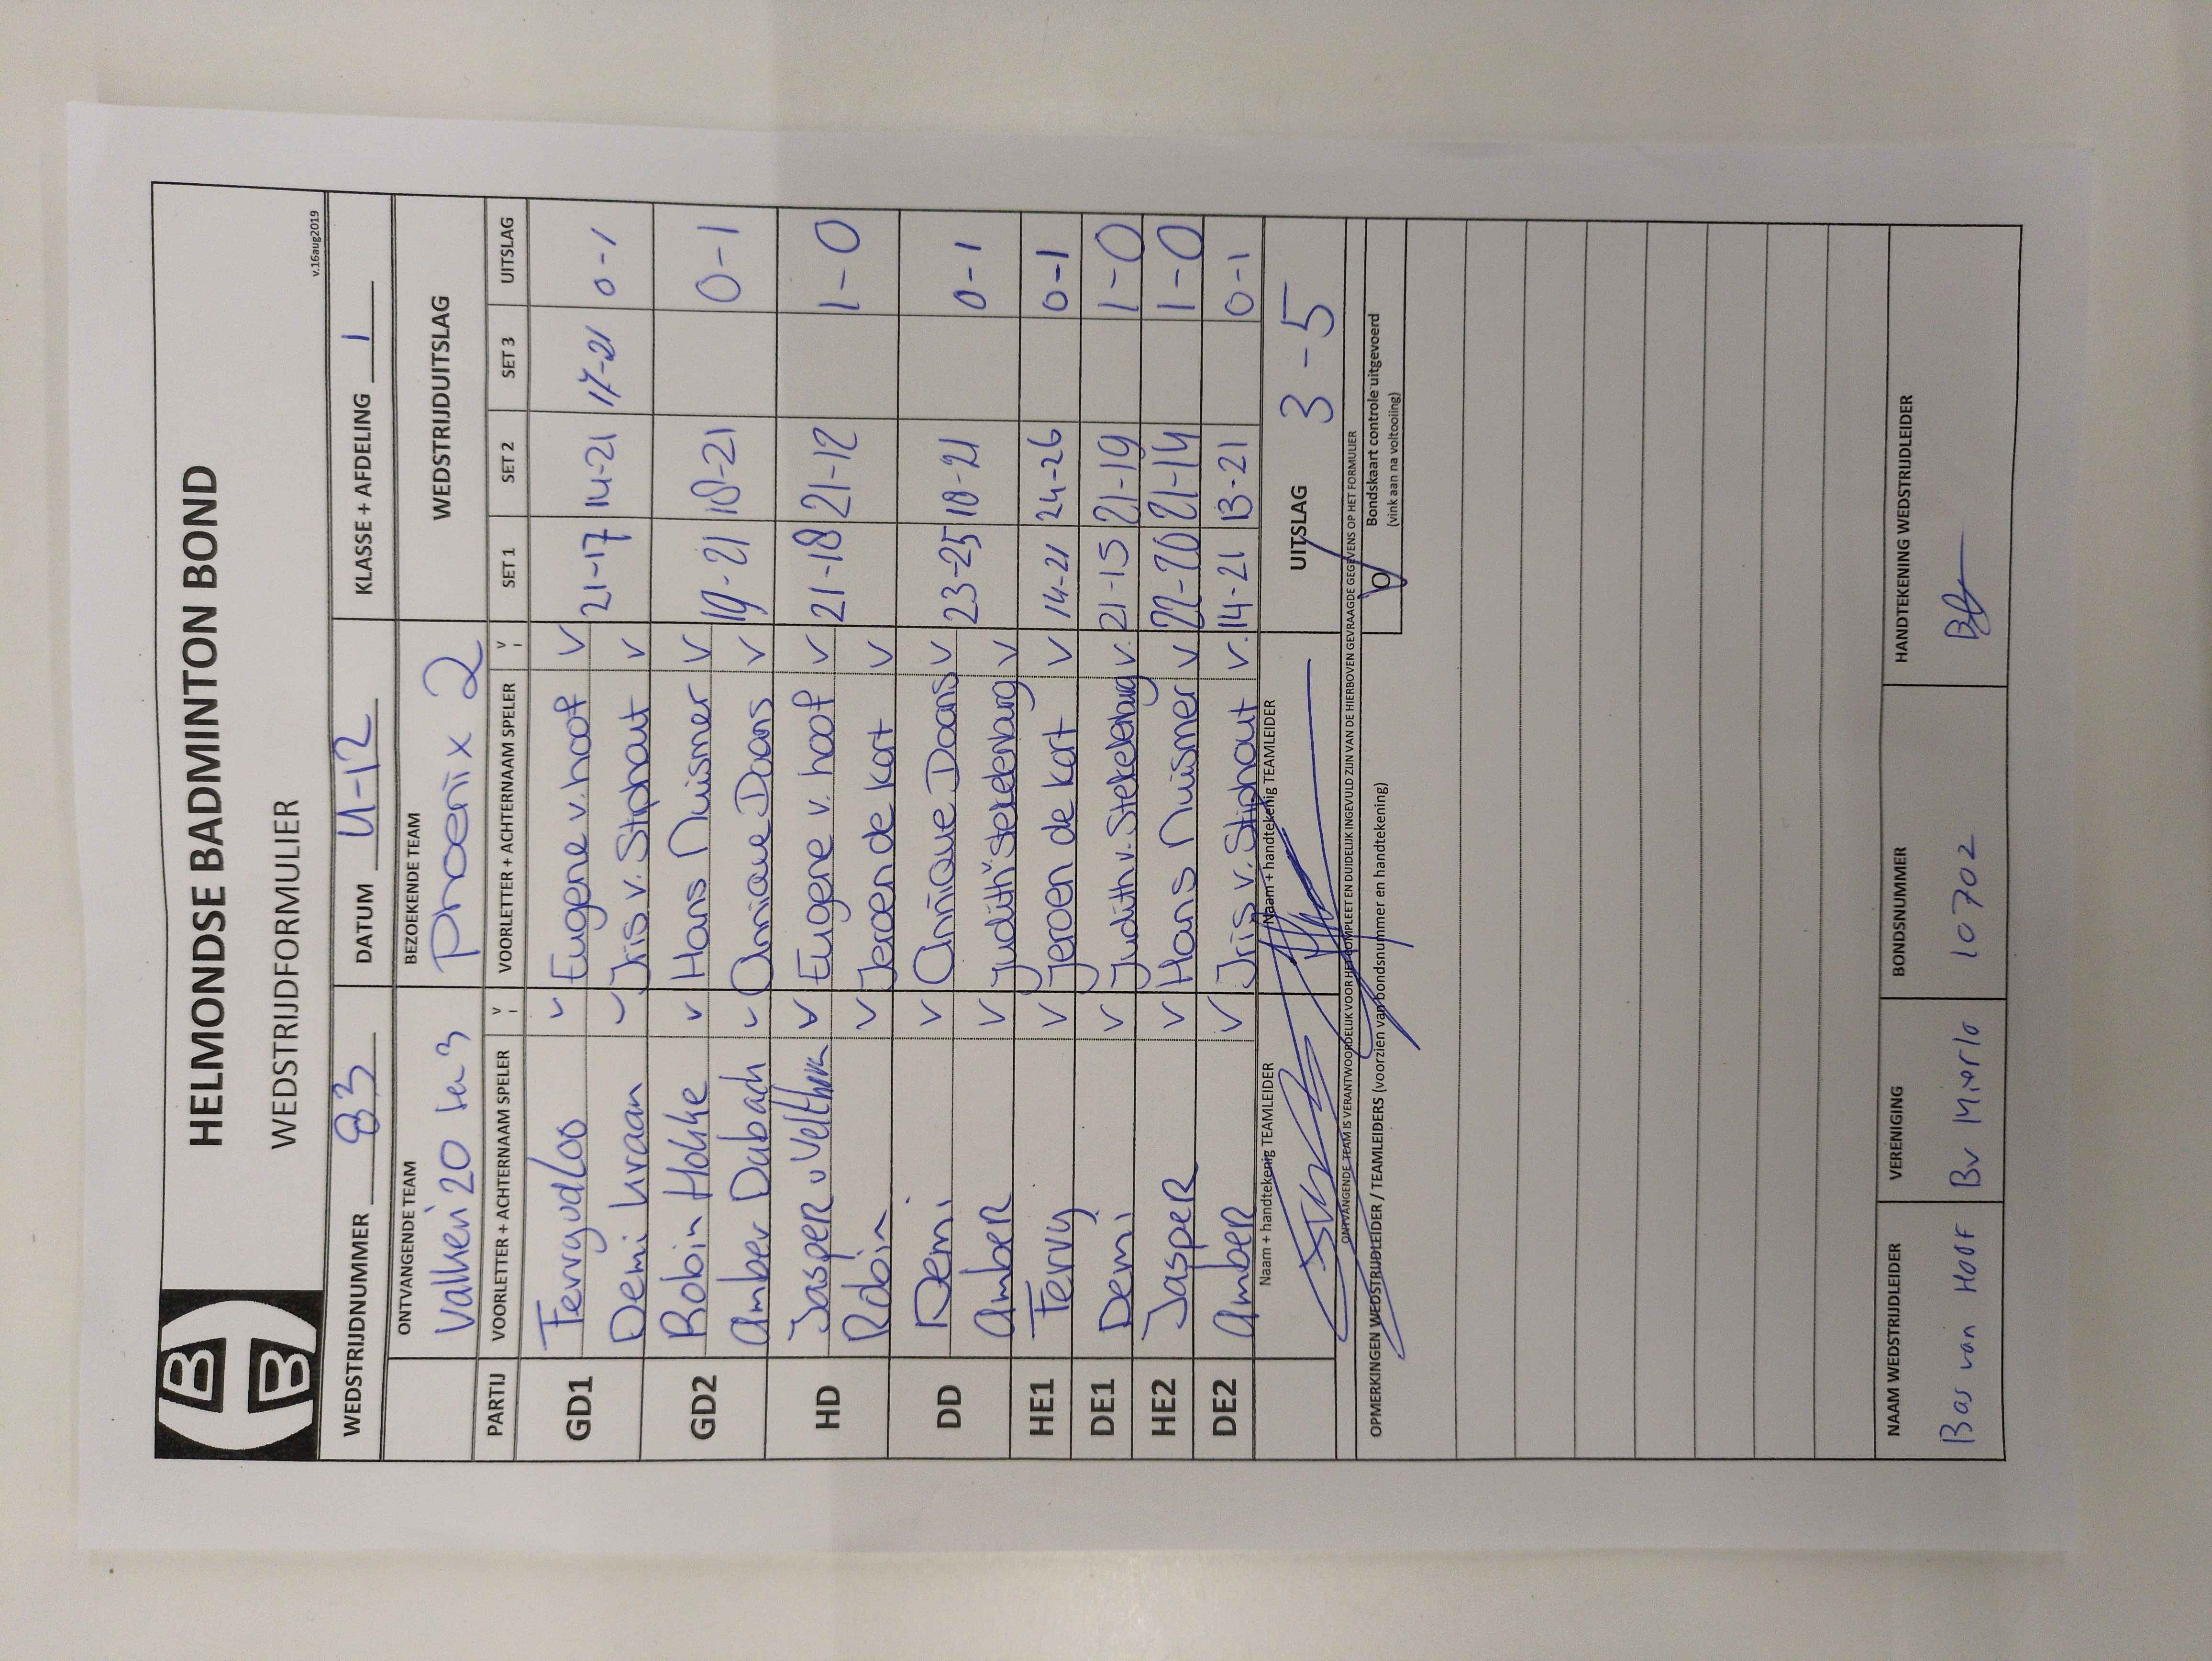 HELMONDSE BADMINTON BOND
WEDSTRIJDFORMULIER
v.16aug2019
WEDSTRIJDNUMMER 83 DATUM 4-12 KLASSE + AFDELING 1
ONTVANGENDE TEAM BEZOEKENDE TEAM WEDSTRIJDUITSLAG
3 Phoenix 2
PARTIJ VOORLETTER + ACHTERNAAM SPELER V VOORLETTER + ACHTERNAAM SPELER V SET 1 SET 2 SET 3 UITSLAG
GD1 Ferry vd Loo v Eugene v. hoof v 21-17 14-21 17-21 0-1
Demi kraan v Iris v. Stiphout v
GD2 Robin Holske v Hans Nuismer v 19-21 18-21 0-1
Amber Dabach v Annique Daans v
HD Jasper v v Eugene v. hoof v 21-18 21-12 1-0
Robin v Jeroen de Kort v
DD Demi v Annique Daans v 23-25 18-21 0-1
Amber v Judith v Stekelenburg v
HE1 Ferry v Jeroen de Kort v 14-21 24-26 0-1
DE1 Demi v Judith v. Stekelenburg v. 21-15 21-19 1-0
HE2 Jasper v Hans Nuismer v 22-20 21-14 1-0
DE2 Amber v Iris v. Stiphout v. 14-21 13-21 0-1
Naam + handtekenig TEAMLEIDER Naam + handtekenig TEAMLEIDER UITSLAG 3-5
ONTVANGENDE TEAM IS VERANTWOORDELIJK VOOR HET COMPLEET EN DUIDELIJK INGEVULD ZIJN VAN DE HIERBOVEN GEVRAAGDE GEGEVENS OP HET FORMULIER
OPMERKINGEN WEDSTRIJDLEIDER / TEAMLEIDERS (voorzien van bondsnummer en handtekening)
O Bondskaart controle uitgevoerd
(vink aan na voltooiing)
NAAM WEDSTRIJDLEIDER VERENIGING BONDSNUMMER HANDTEKENING WEDSTRIJDLEIDER
Bas van Hoof Bv Mierlo 10702